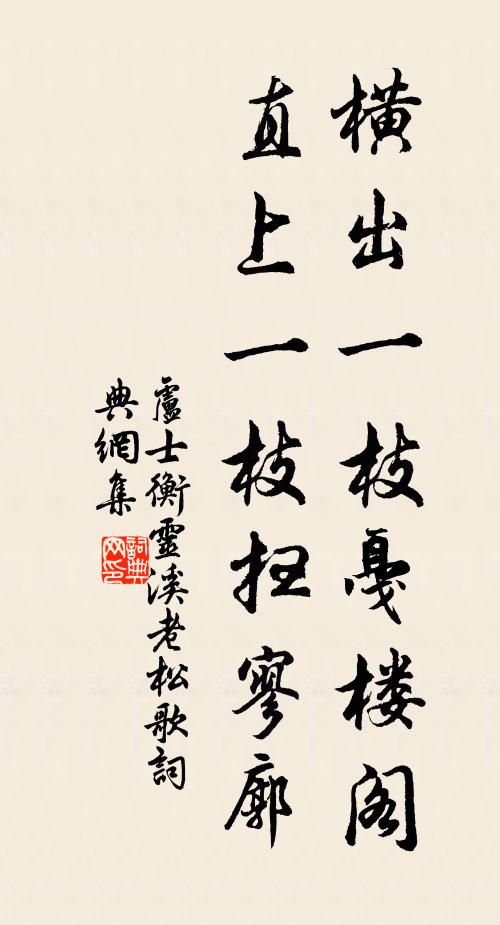 横出一枝戛楼阁
直上一枝扫寥廓
盧士衡靈溪老松歌詞
典網集
詞典網印